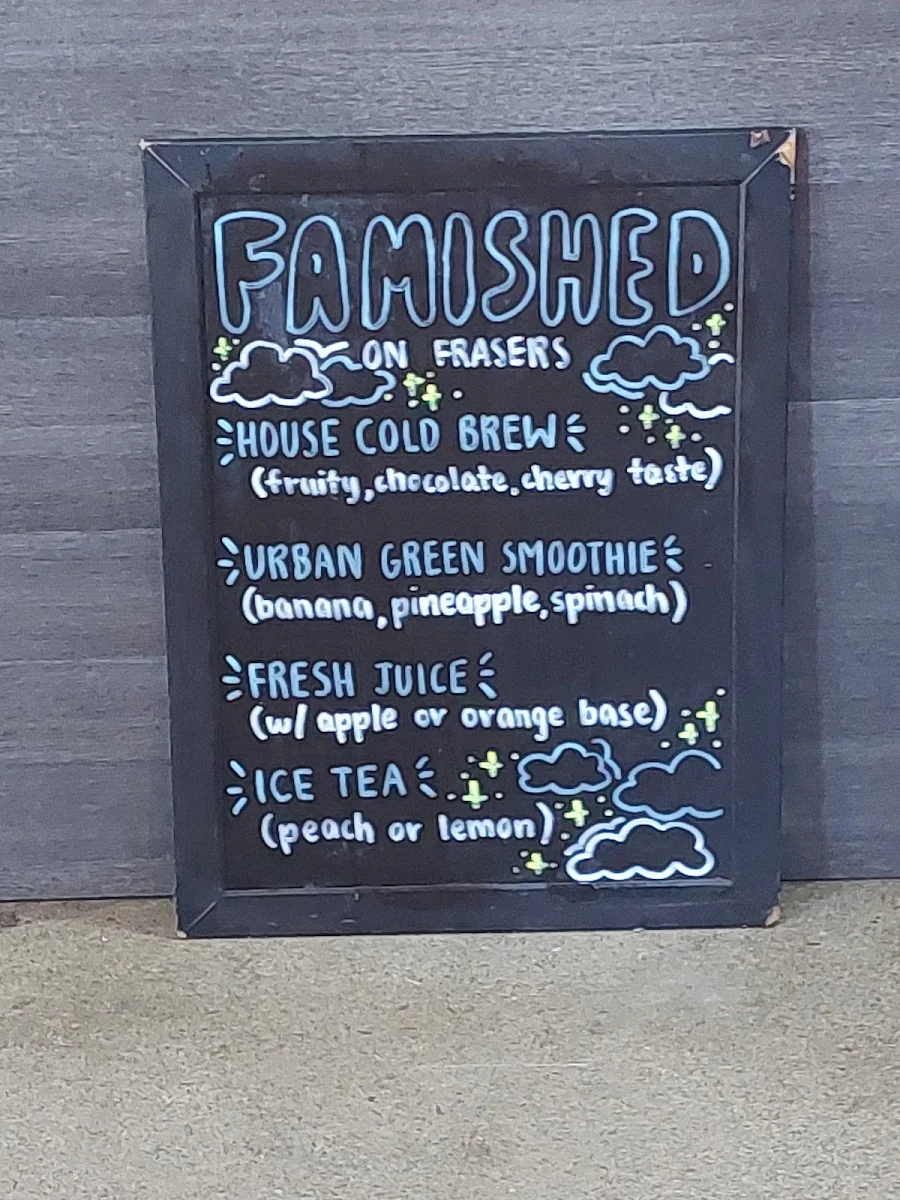 FAMISHED
ON FRASERS
HOUSE COLD BREW
(fruity, chocolate, cherry taste)
URBAN GREEN SMOOTHIE
(banana, pineapple, spinach)
FRESH JUICE
(w/ apple or orange base)
ICE TEA
(peach or lemon)